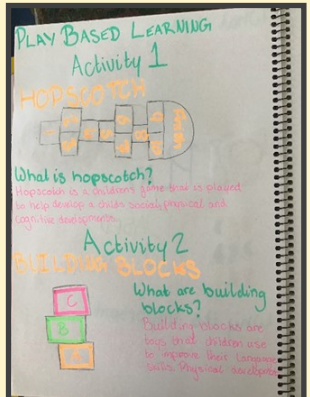 PLAY BASED LEARNING
Activity 1
HOPSCOTCH
What is hopscotch?
Hopscotch is a children's game that is played
to help develop a childs social, physical and
cognitive developments.
Activity 2
BUILDING BLOCKS
C
B
What are building
blocks?
Building blocks are
toys that children use
to improve their language
skills. Physical